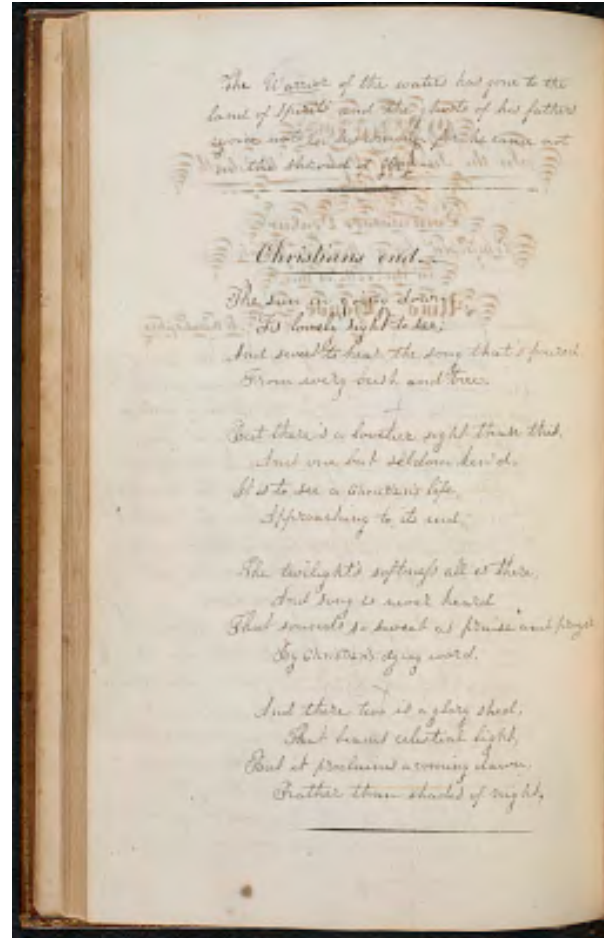 The Warrior of the waters has gone to the
land of Spirits and the ghosts of his fathers
not for he came not
in the shroud of
Christians end
The sun is going down,
Tis lovely sight to see;
And sweet to hear the song that's poured
From every bush and tree.
But there's a lovelier sight than this,
And one but seldom ken'd,
It is to see a Christian's life,
Approaching to its end.
The twilight's softness all is there,
And song is never heard
That sounds so sweet as praise and prayer
By Christian's dying word.
And there too is a glory shed,
That beams celestial light,
But it proclaims a coming dawn,
Rather than shades of night.